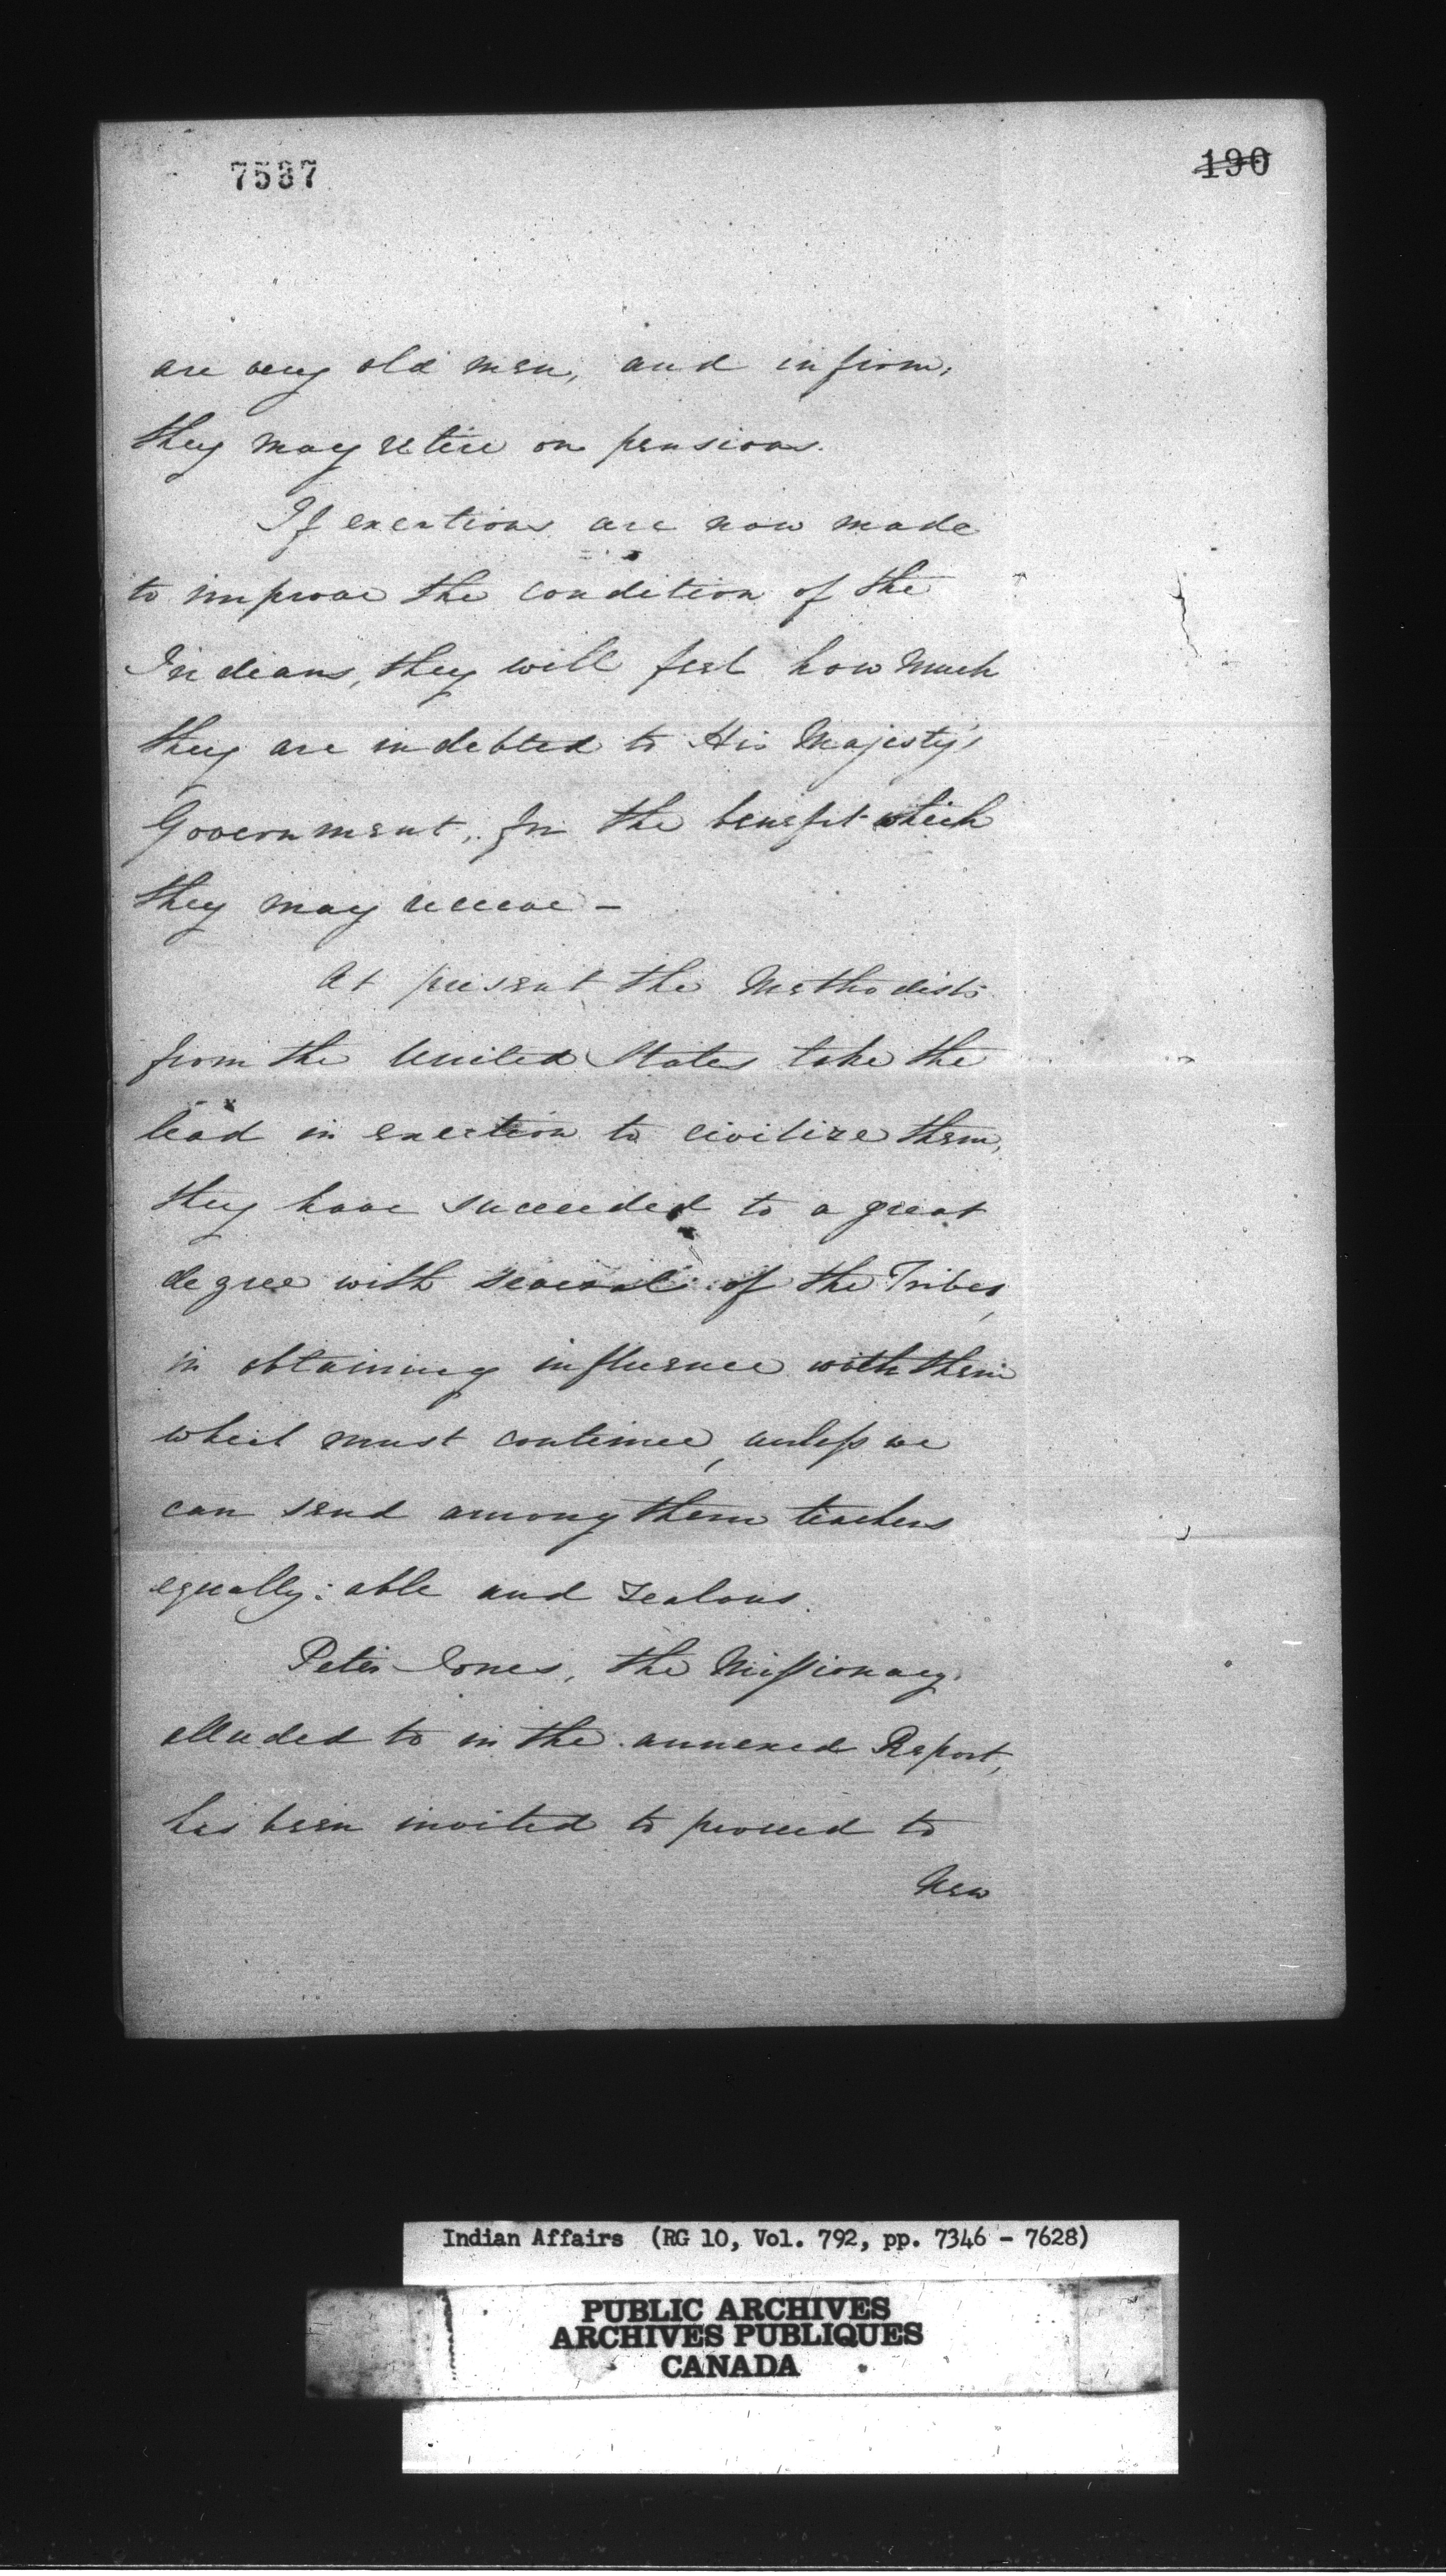 7537
190
are very old men, and infirm,
they may retire on pensions.
If exertions are now made
to improve the condition of the
Indians, they will feel how much
they are indebted to His Majesty's
Government, for the benefit which
they may receive -
At present the Methodists
from the United States take the
lead in exertion to civilize them,
they have succeeded to a great
degree with several of the Tribes,
in obtaining influence with them
which must continue, unless we
can send among them teachers
equally able and zealous.
Peter Jones, the Missionary,
alluded to in the annexed Report,
has been invited to proceed to
New
Indian Affairs (RG 10, Vol. 792, pp. 7346 - 7628)
PUBLIC ARCHIVES
ARCHIVES PUBLIQUES
CANADA